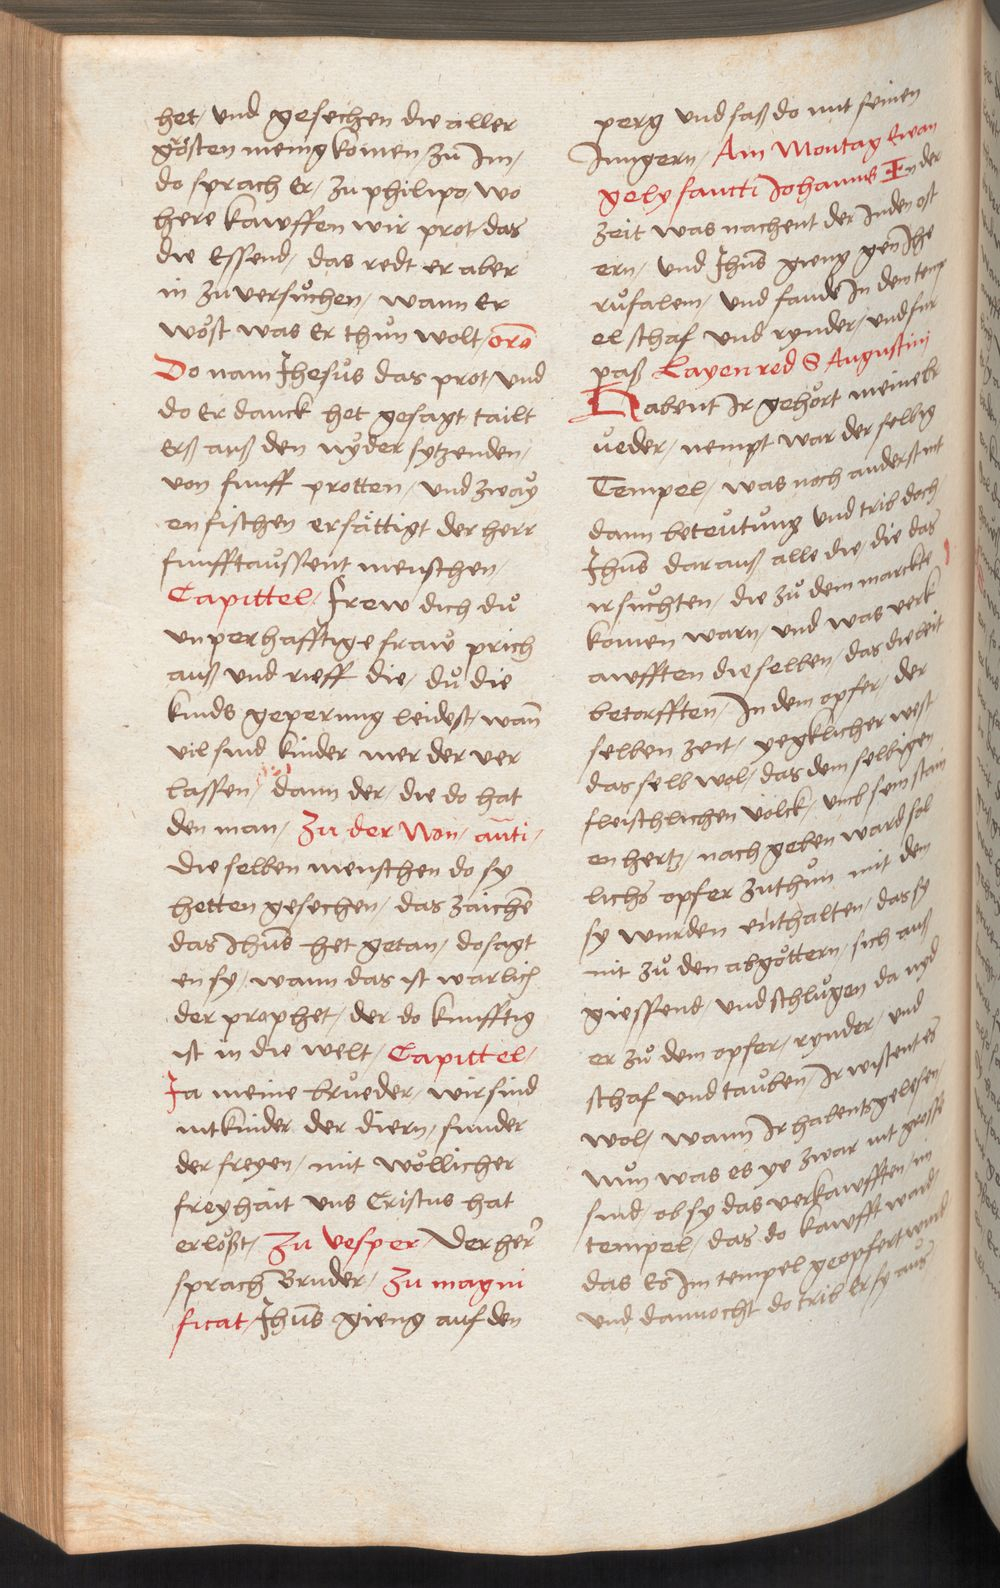 het / und gesechen die aller
grösten menig komen / zu Im /
do sprach Er / zu philipo / wo
here kawffen wir prot / das
die Essend / das redt er aber
in zu versůchen / wann Er
wost was Er thůn wolt / oro
Do nam Jhesůs das prot / und
do Er danck het gesagt tailt
erß auß den nyder sytzenden /
von funff protten / und zway
en fischen ersättigt der herr
funfftaůssent menschen /
Capittel / frew dich dů
unperhafftige fraw prich
auß und rieff die / dů die
kinds geperung leidest / wañ
vil sind kinder mer der ver
lassen / dann der / die do hat
den man / Zu der Non / añti /
die selben menschen do sy
hetten gesechen / das zaichē
das Jhūs het getan / do sagt
en sy / wann das ist warlich
der prophet / der do kunfftig
ist in die welt / Capittel /
Ja meine brůeder / wir sind
nit kinder der diern / sunder
der freyen / mit wollicher
freyhait uns Cristus hat
erlößt / Zu vesper / Der her
sprach Bruder / Zu magni
ficat / Jhūs gieng auf den
perg und saß do mit seinen
Jungern / Am Montag Ewan
gely sancti Johannis In der
zeit was nachent der Juden ost
ern / und Jhūs gieng gen Jhe
rusalem / und fande In dem temp
el schaf und rynder / und fur
paß Layenred S Augustini
Habent Ir gehört meine br
ůeder / nempt war der selbig
Tempel / was noch anderst nit
dann betewtung und trib doch
Jhūs darauß alle die / die das
ir sůchten / die zů dem marckte
komen warn / und was verk
awfften die selben / das die leit
betorfften / In dem opfer / der
selben zeit / yegklicher west
das selb wol / das dem selbigen
fleischlichen volck / und sein stain
en hertz / nach geben ward sol
lichs opfer zuthůn mit dem
sy wurden enthalten / das sy
nit zů den abgöttern / sich auß
giessend / und schlůgen da nyd
er zů dem opfer / rynder / und
schaf und tauben / Ir wistent es
wol / wann Ir habents gelesen /
Nůn was es ye zwar nit grosse
sind / ob sy das verkawfften / im
tempel / das do kawfft ward /
das Es Im tempel geopfert wurd
und dannocht do trib Er sy auß